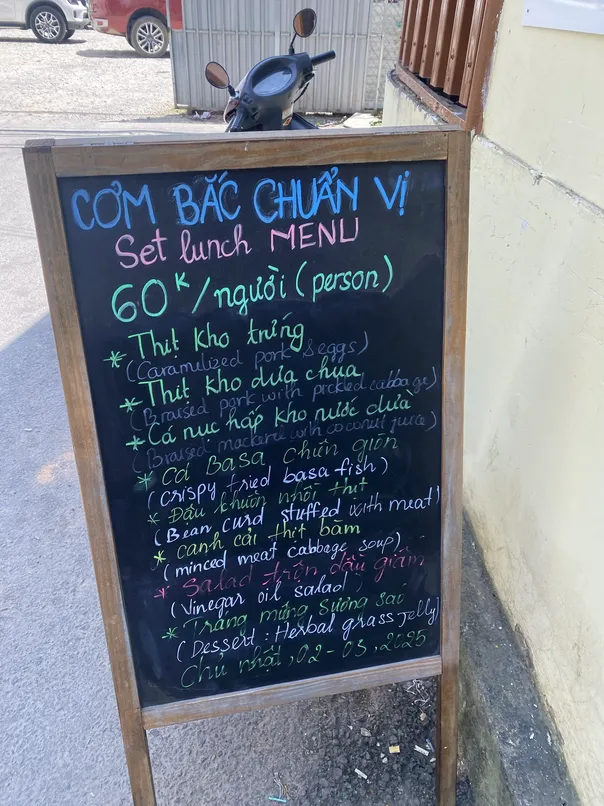 CƠM BẮC CHUẨN VỊ
Set lunch MENU
60K/người (person)
* Thịt kho trứng
(Caramelized pork & eggs)
* Thịt kho dưa chua
(Braised pork with pickled cabbage)
* Cá nục hấp kho nước dừa
(Braised mackerel with coconut juice)
* Cá Basa chiên giòn
(crispy fried basa fish)
* Đậu khuôn nhồi thịt
(Bean curd stuffed with meat)
* canh cải thịt bằm
(minced meat cabbage soup)
* Salad trộn dầu giấm
(Vinegar oil salad)
* Tráng miệng Sương sáo
(Dessert: Herbal grass Jelly)
Chủ nhật, 02-03, 2025